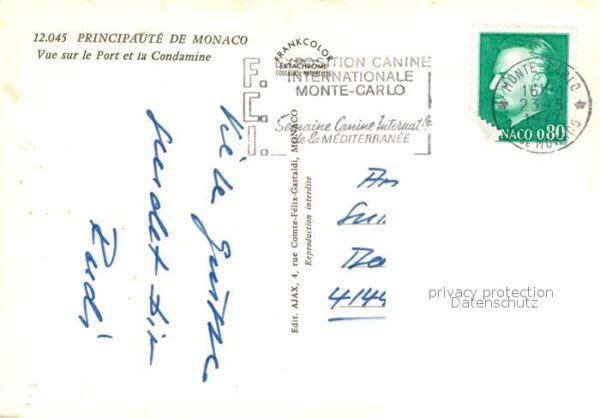 12.045 PRINCIPAUTÉ DE MONACO
Vue sur le Port et la Condamine
FRANKCOLOR
EKTACHROME
F.C.I.
EXPOSITION CANINE
INTERNATIONALE
MONTE-CARLO
Semaine Canine Internat.le
de la MÉDITERRANÉE
MONTE-CARLO
16H
23-5
MONACO 0,80
Edit. AJAX, 4, rue Comte-Félix-Gastaldi, MONACO
Reproduction interdite
Viele Grüsse
sendet Dir
Rudi
An
4144
privacy protection
Datenschutz